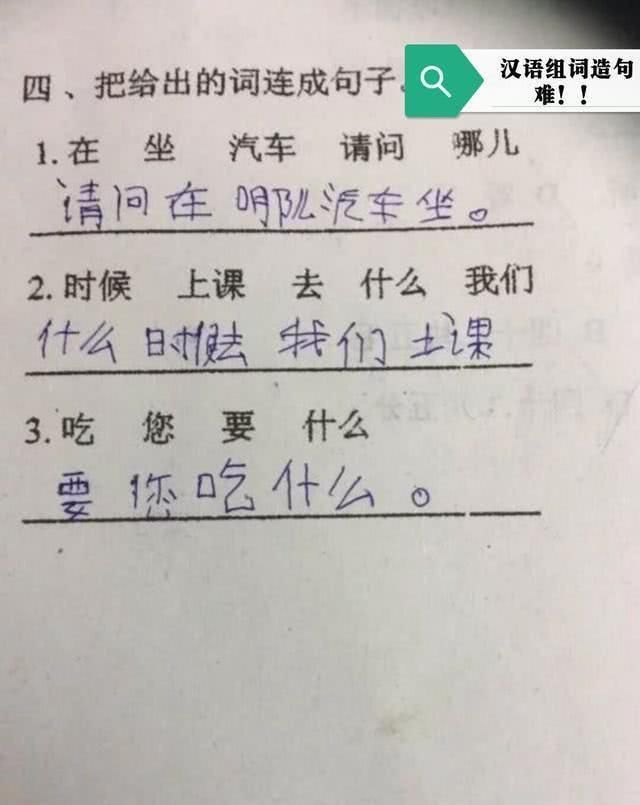 汉语组词造句
难！！
四、把给出的词连成句子。
1.在 坐 汽车 请问 哪儿
请问在哪儿汽车坐。
2.时候 上课 去 什么 我们
什么时候去我们上课
3.吃 您 要 什么
要您吃什么。